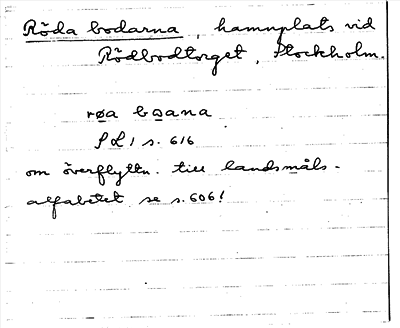 Röda bodarna, hamnplats vid
Rödbodtorget, Stockholm.
røa bɷana
S L 1 s. 616
om överflyttn. till landsmåls-
alfabetet se s. 606!